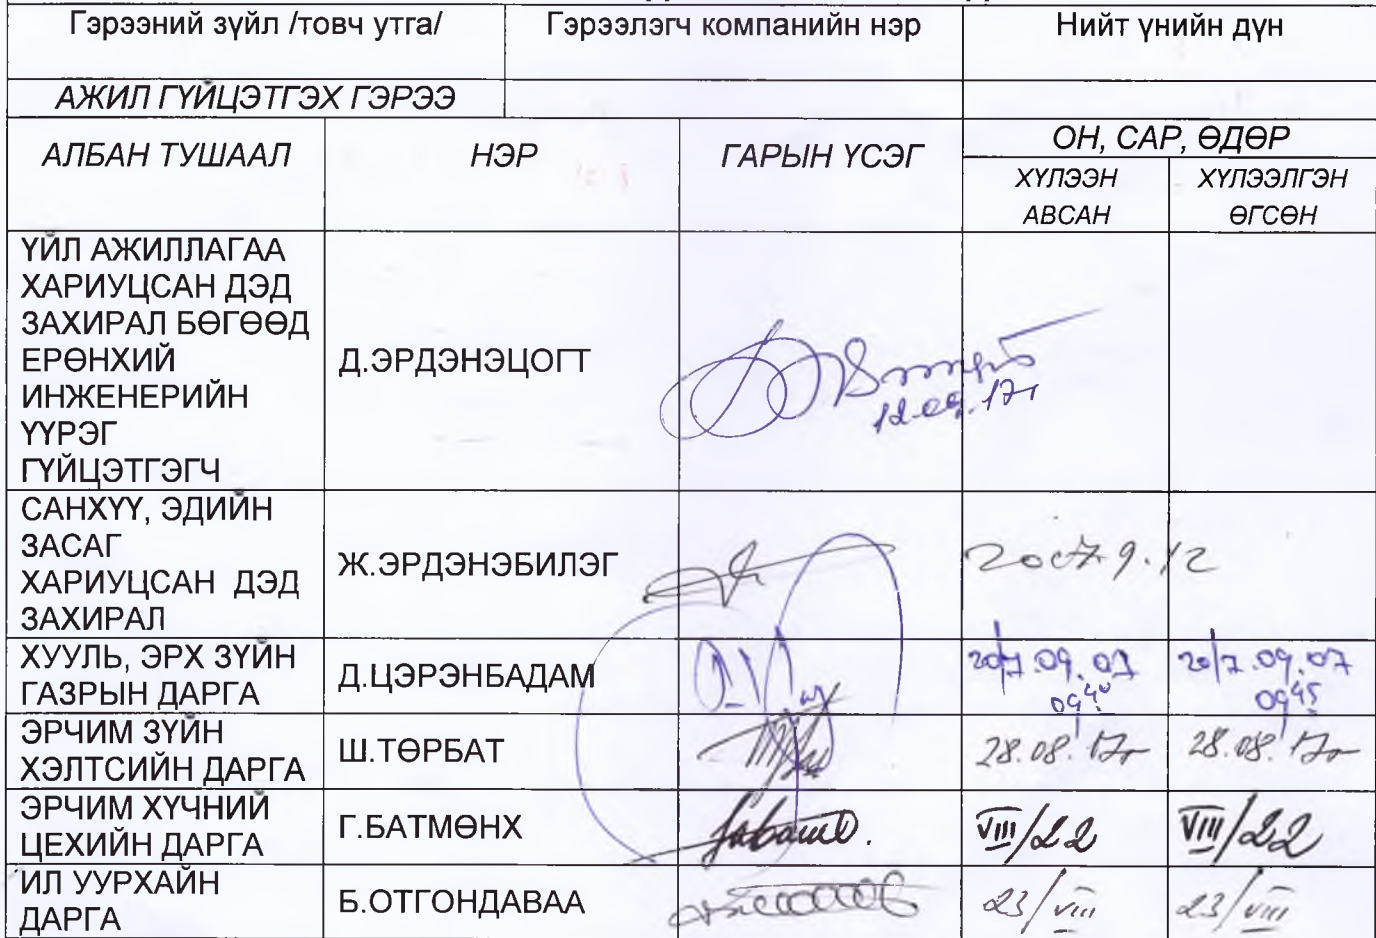 Гэрээний зүйл /товч утга/
Гэрээлэгч компанийн нэр
Нийт үнийн дүн
АЖИЛ ГҮЙЦЭТГЭХ ГЭРЭЭ
АЛБАН ТУШААЛ
НЭР
ГАРЫН ҮСЭГ
ОН, САР, ӨДӨР
ХҮЛЭЭН
АВСАН
ХҮЛЭЭЛГЭН
ӨГСӨН
ҮЙЛ АЖИЛЛАГАА
ХАРИУЦСАН ДЭД
ЗАХИРАЛ БӨГӨӨД
ЕРӨНХИЙ
ИНЖЕНЕРИЙН
ҮҮРЭГ
ГҮЙЦЭТГЭГЧ
Д.ЭРДЭНЭЦОГТ
12.09.17
САНХҮҮ, ЭДИЙН
ЗАСАГ
ХАРИУЦСАН ДЭД
ЗАХИРАЛ
Ж.ЭРДЭНЭБИЛЭГ
2017.9.12
ХУУЛЬ, ЭРХ ЗҮЙН
ГАЗРЫН ДАРГА
Д.ЦЭРЭНБАДАМ
2017.09.07
09 40
2017.09.07
09 45
ЭРЧИМ ЗҮЙН
ХЭЛТСИЙН ДАРГА
Ш.ТӨРБАТ
28.08.17
28.08.17
ЭРЧИМ ХҮЧНИЙ
ЦЕХИЙН ДАРГА
Г.БАТМӨНХ
VIII/22
VIII/22
ИЛ УУРХАЙН
ДАРГА
Б.ОТГОНДАВАА
23/VIII
23/VIII